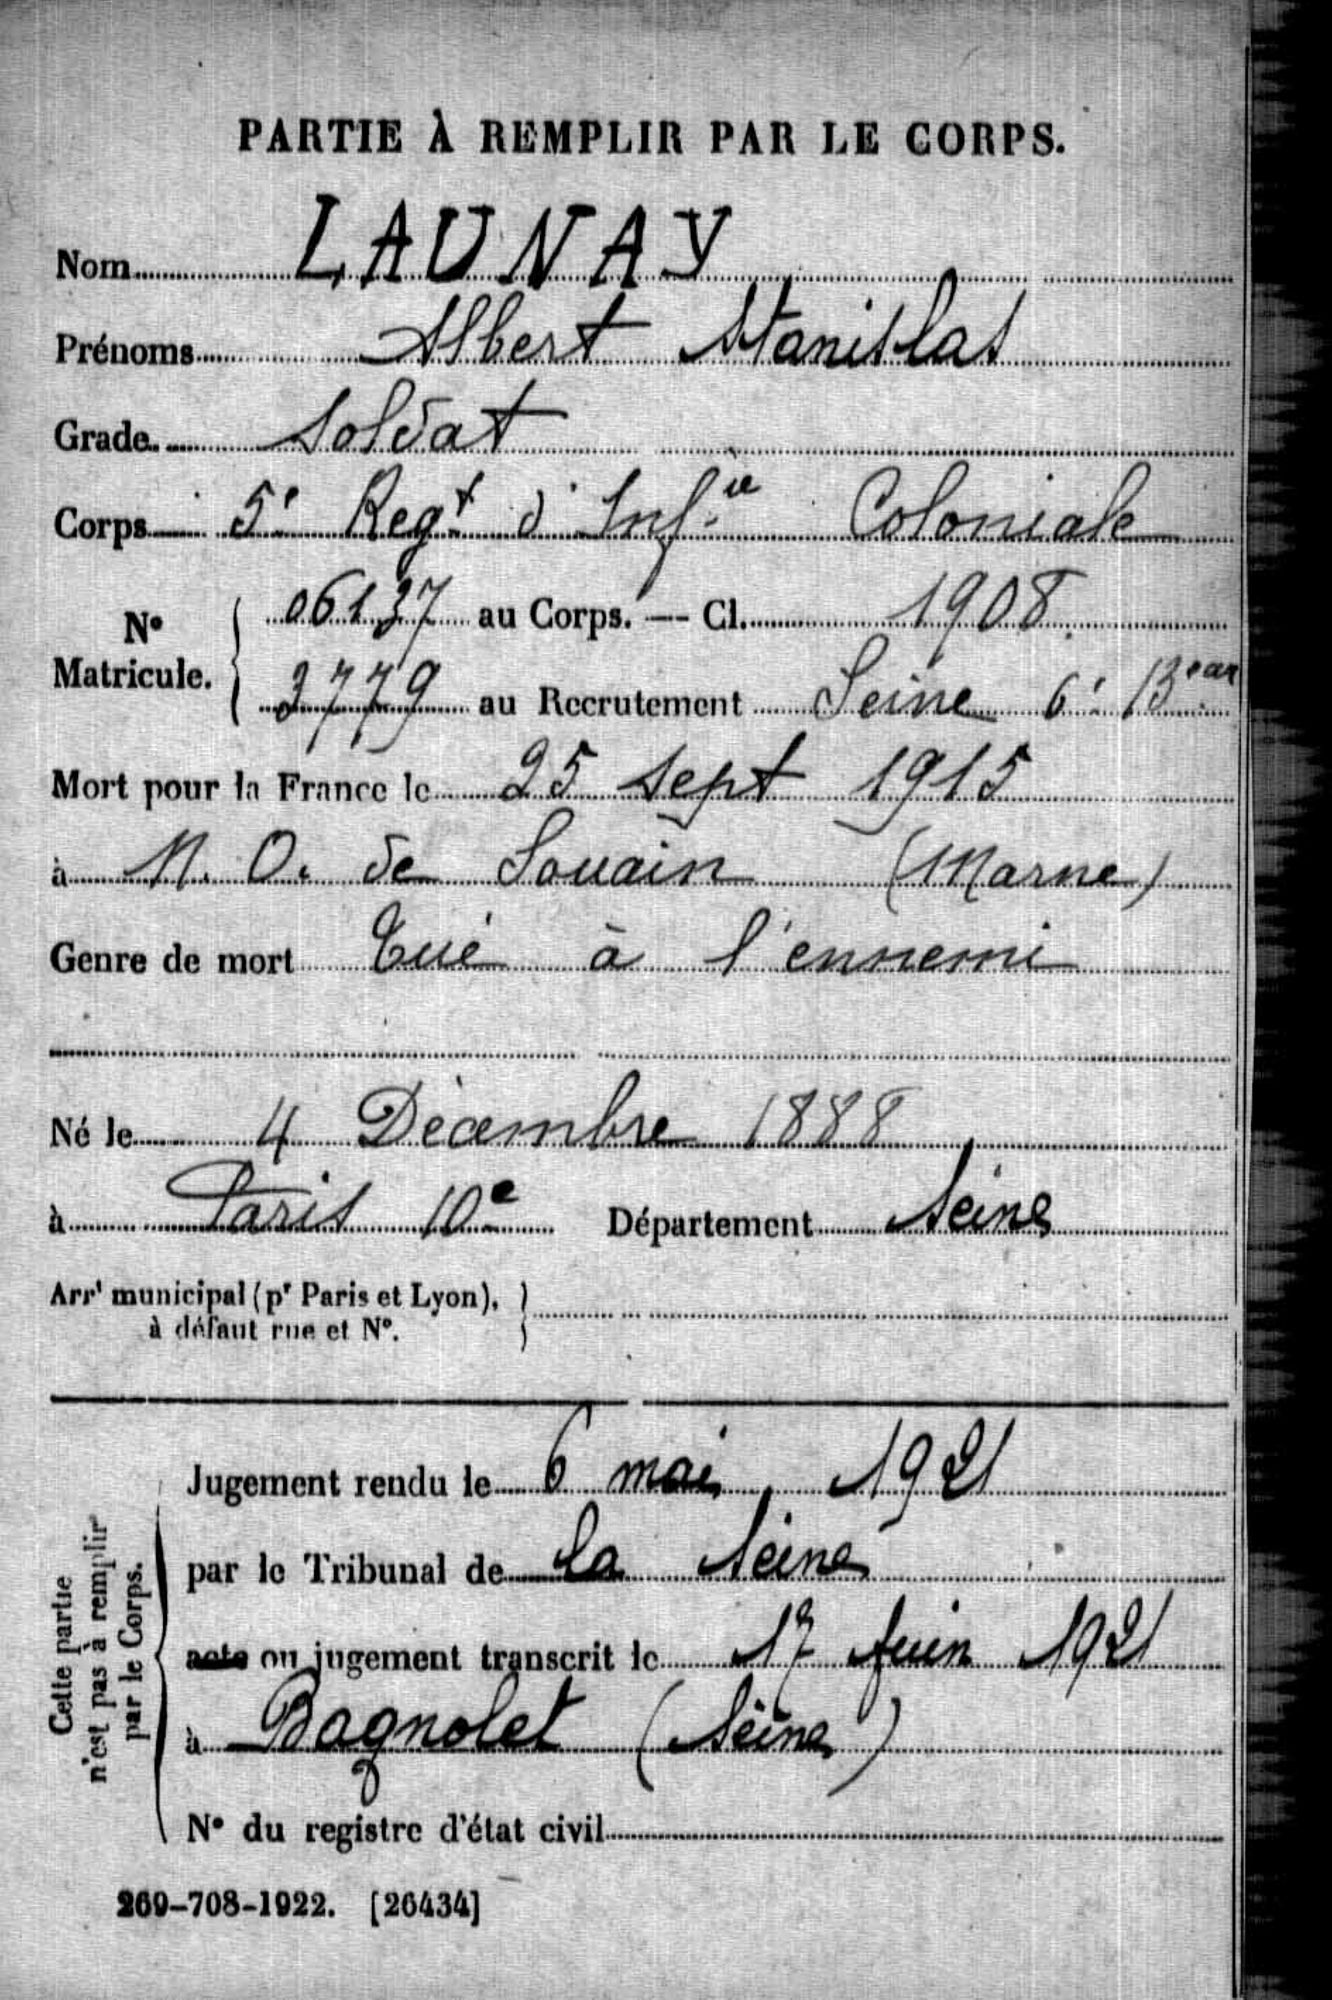 PARTIE À REMPLIR PAR LE CORPS.
Nom LAUNAY
Prénoms Albert Stanislas
Grade Soldat
Corps 5e Regt d'Infie Coloniale
N° Matricule. 06137 au Corps. — Cl. 1908
3779 au Recrutement Seine 6e Beau
Mort pour la France le 25 sept 1915
à N. O. de Souain (Marne)
Genre de mort Tué à l'ennemi
Né le 4 Décembre 1888
à Paris 10e Département Seine
Arrt municipal (pr Paris et Lyon),
à défaut rue et N°.
Cette partie
n'est pas à remplir
par le Corps.
Jugement rendu le 6 mai 1921
par le Tribunal de la Seine
acte ou jugement transcrit le 17 Juin 1921
à Bagnolet (Seine)
N° du registre d'état civil
269-708-1922. [26434]